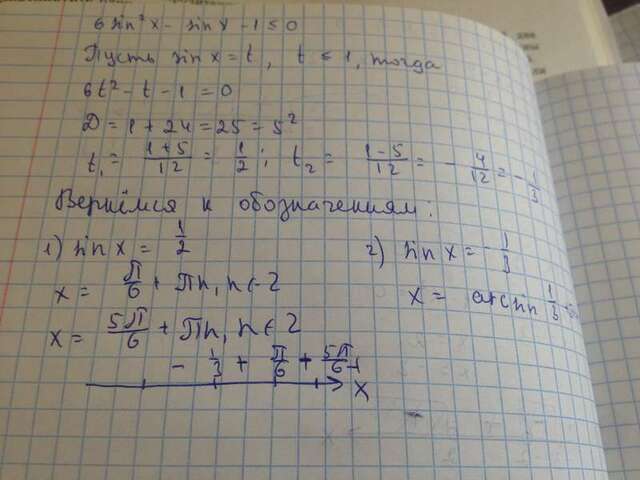 6 sin²x - sin x - 1 ≤ 0
Пусть sin x = t, t ≤ 1, тогда
6t² - t - 1 = 0
D = 1 + 24 = 25 = 5²
t₁ = (1+5)/12 = 1/2; t₂ = (1-5)/12 = -4/12 = -1/3
Вернёмся к обозначениям:
1) sin x = 1/2 2) sin x = -1/3
x = π/6 + πn, n ∈ Z x = arcsin 1/3
x = 5π/6 + πn, n ∈ Z
- 1/3 + π/6 + 5π/6
x